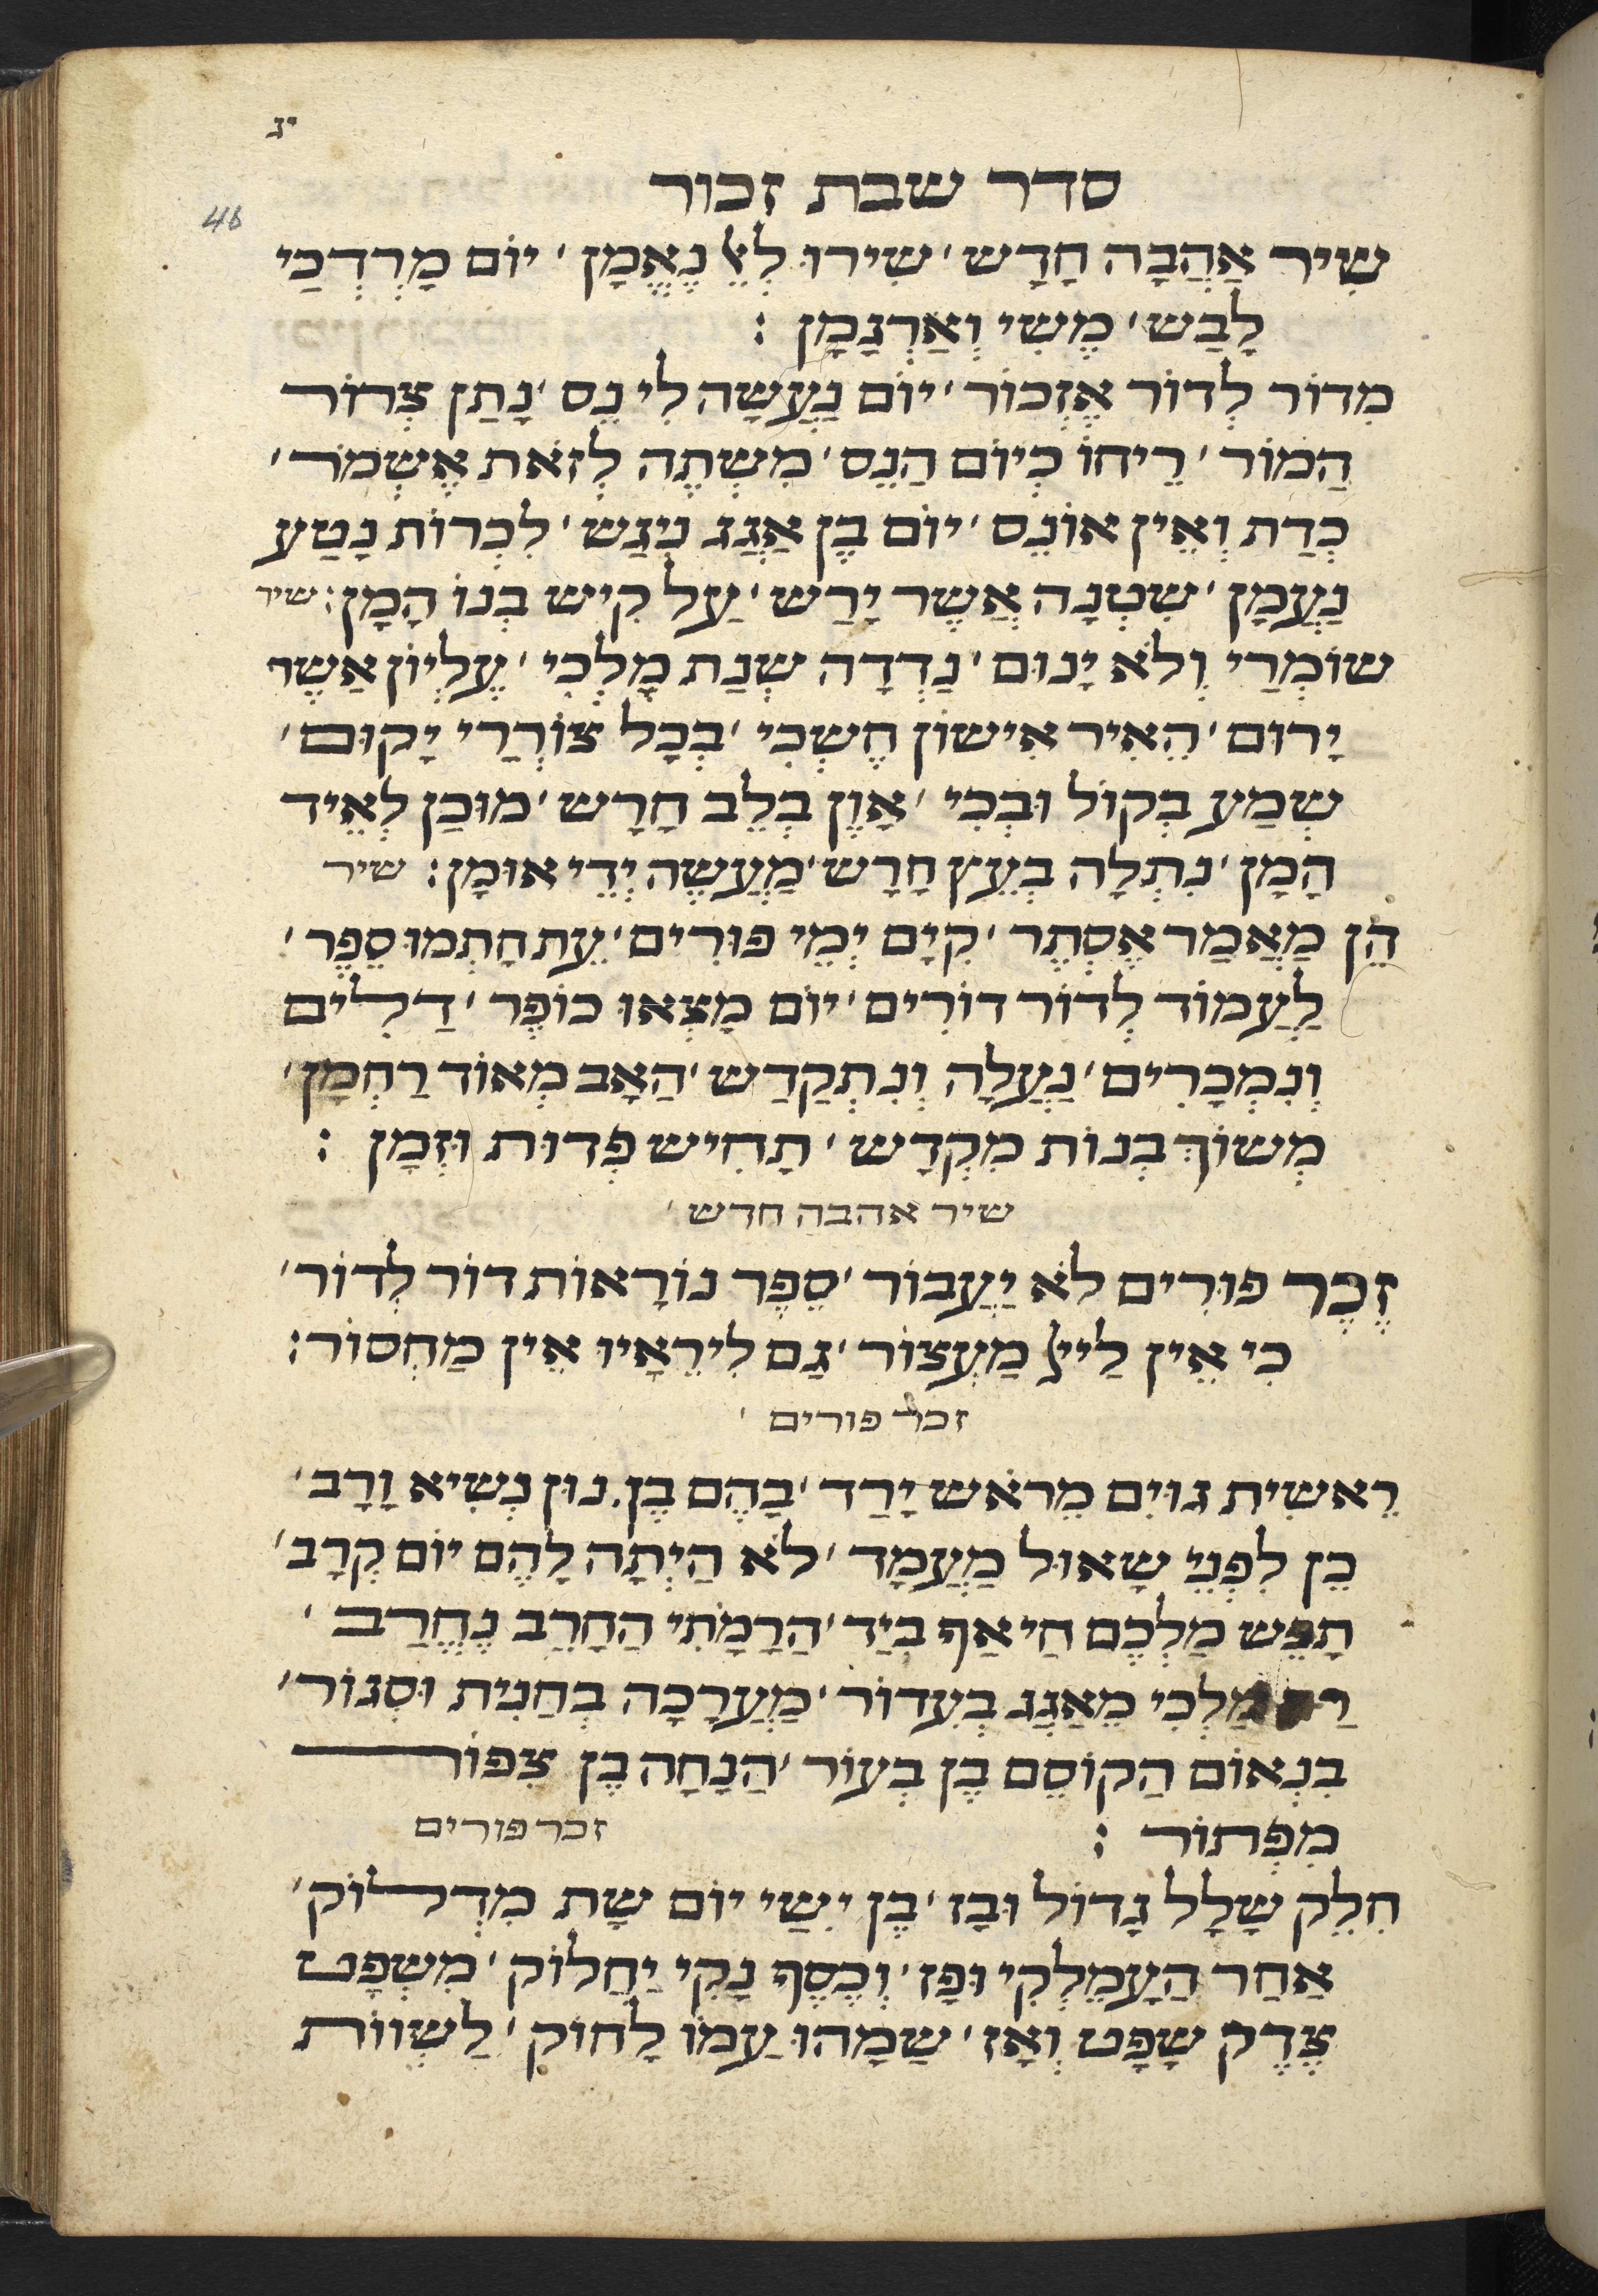 יג
סדר שבת זכור
46
שִׁיר אַהֲבָה חָדָשׁ׳ שִׁירוּ לְאֵל נֶאֱמָן׳ יוֹם מָרְדְּכַי
לָבַשׁ׳ מֶשִׁי וְאַרְגָּמָן :
מִדּוֹר לְדוֹר אֶזְכּוֹר׳ יוֹם נַעֲשָׂה לִי נֵס׳ נָתַן צְרוֹר
הַמּוֹר׳ רֵיחוֹ כְּיוֹם הַנֵּס׳ מִשְׁתֶּה לְזֹאת אֶשְׁמֹר׳
כְּדַת וְאֵין אוֹנֵס׳ יוֹם בֶּן אֲגַג נִגַּשׁ׳ לִכְרוֹת נָטַע
נַעֲמָן׳ שִׂטְנָה אֲשֶׁר יָרַשׁ׳ עַל קִישׁ בְּנוֹ הָמָן: שיר
שׁוֹמְרַי וְלֹא יָנוּם׳ נַדְדָה שְׁנַת מַלְכִּי׳ עֶלְיוֹן אֲשֶׁר
יָרוּם׳ הֵאִיר אִישׁוֹן חֶשְׁכִּי׳ בְּכָל צוֹרְרַי יָקוּם׳
שְׁמַע בְּקוֹל וּבְכִי׳ אָוֶן בְּלֵב חָרָשׁ׳ מוּכַן לְאֵיד
הָמָן׳ נִתְלָה בְּעֵץ חָרָשׁ׳ מַעֲשֵׂה יְדֵי אוּמָן: שיר
הֵן מַאֲמַר אֶסְתֵּר׳ קִיַּם יְמֵי פּוּרִים׳ עֵת חָתְמוּ סֵפֶר׳
לַעֲמוֹד לְדוֹר דּוֹרִים׳ יוֹם מָצְאוּ כּוֹפֶר׳ דַּלִּים
וְנִמְכָּרִים׳ נַעֲלָה וְנִתְקַדַּשׁ׳ הָאָב מְאוֹד רַחְמָן׳
מְשׂוֹךְ בְּנוֹת מִקְדָּשׁ׳ תָּחִישׁ פְּדוּת וּזְמָן :
שיר אהבה חדש׳
זֵכֶר פּוּרִים לֹא יַעֲבוֹר׳ סֵפֶר נוֹרָאוֹת דּוֹר לְדוֹר׳
כִּי אֵין לַייָ מַעְצוֹר׳ גַּם לִירֵאָיו אֵין מַחְסוֹר:
זכר פורים׳
רֵאשִׁית גּוֹיִם מֵרֹאשׁ יָרַד׳ בָּהֶם בֶּן נוּן נָשִׂיא וָרָב׳
כֵּן לִפְנֵי שָׁאוּל מַעֲמָד׳ לֹא הָיְתָה לָהֶם יוֹם קְרָב׳
תָּפַשׂ מַלְכָּם חַי אַף בְּיַד׳ הָרָמָתִי הֶחָרֵב נֶחֱרַב׳
מַלְכִּי מֵאֲגַג בְּעִדּוֹר׳ מַעֲרָכָה בַּחֲנִית וּסְגוֹר׳
בִּנְאוֹם הַקּוֹסֵם בֶּן בְּעוֹר׳ הִנָּחָה בֶּן צִפּוֹר
מִפְּתוֹר : זכר פורים
חִלֵּק שָׁלָל גָּדוֹל וּבַז׳ בֶּן יִשַׁי יוֹם שָׁת מִדְלוֹק׳
אַחַר הָעֲמָלֵקִי וּפָז׳ וְכֶסֶף נָקִי יַחֲלוֹק׳ מִשְׁפָּט
צֶדֶק שָׁפָט וְאָז׳ שָׂמָהוּ עַמּוֹ לָחוֹק׳ לַשְׁווֹת